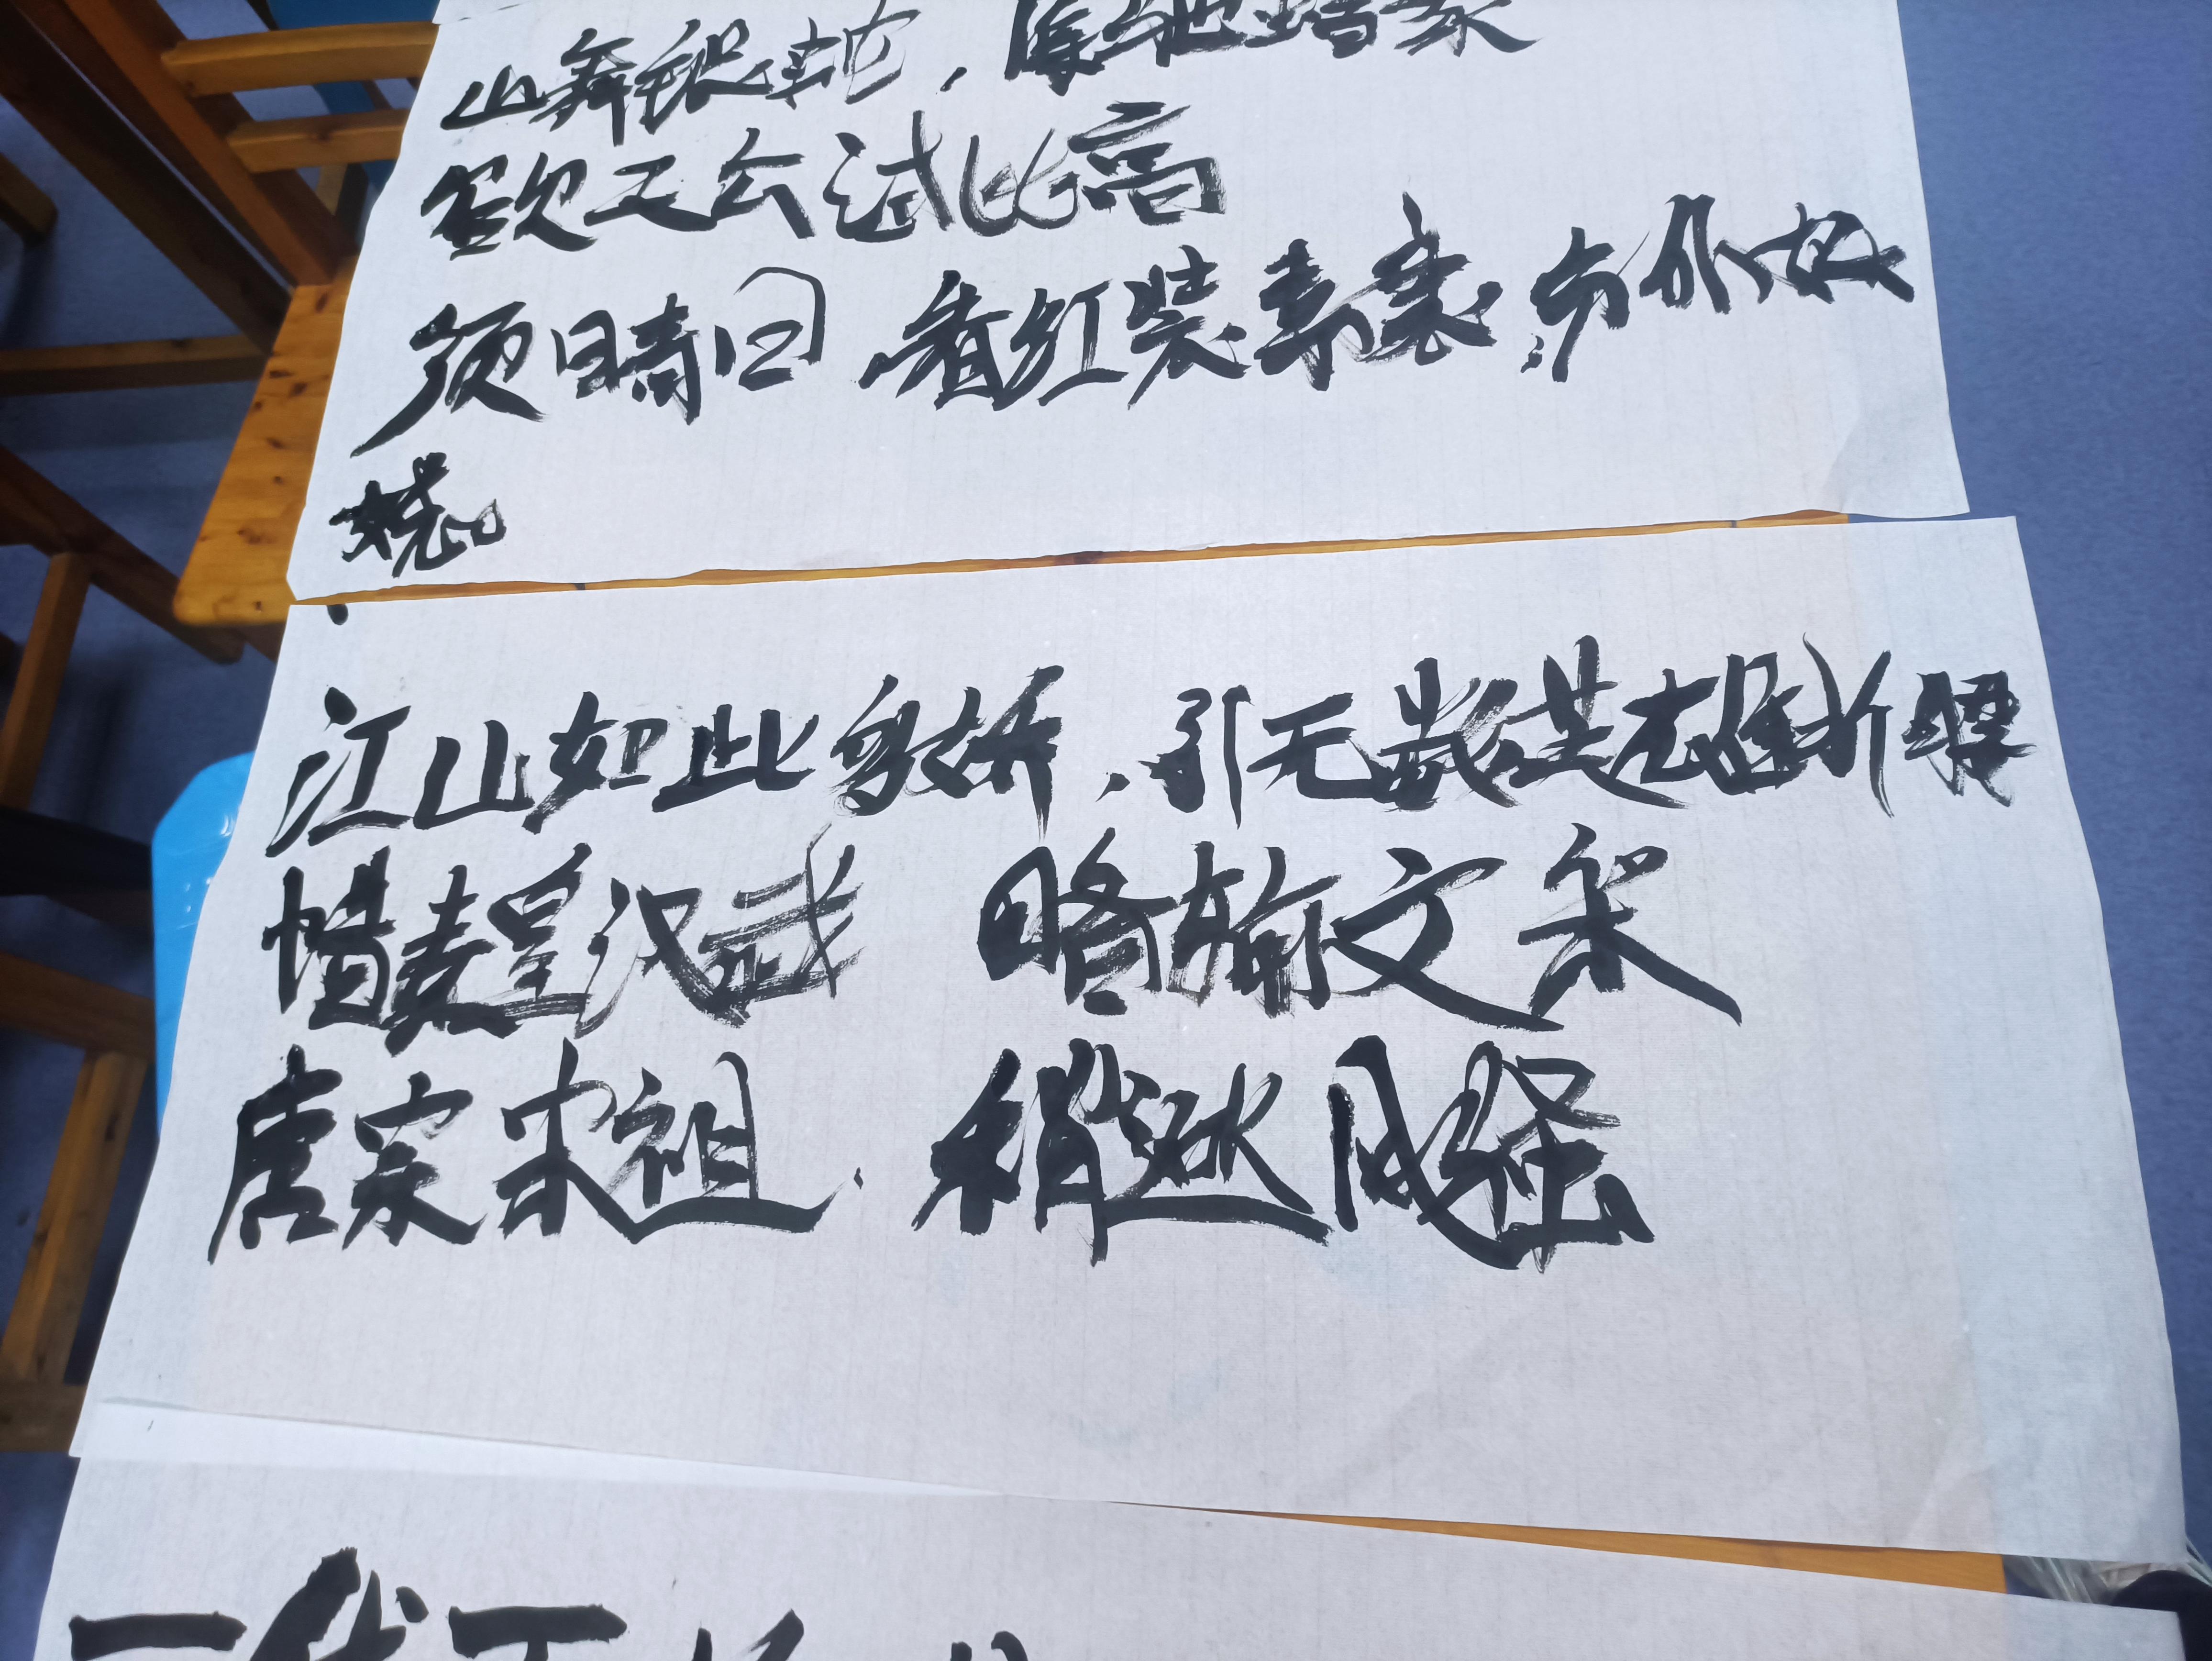 山舞银蛇，原驰蜡象
欲与天公试比高
须晴日，看红装素裹，分外妖
娆
江山如此多娇，引无数英雄折腰
惜秦皇汉武 略输文采
唐宗宋祖，稍逊风骚
一代天